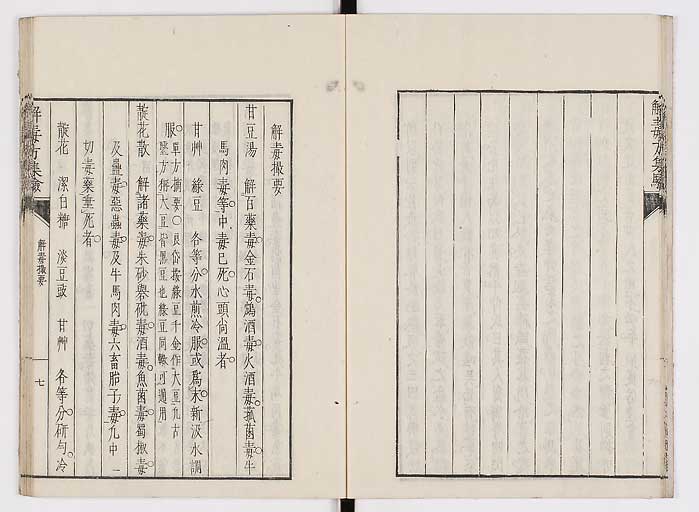 解毒方集驗
解毒撮要
甘豆湯　解百藥毒金石毒鴆酒毒火酒毒菰菌毒牛
馬肉毒等中毒已死心頭尙溫者
甘艸　綠豆　各等分水煎冷服或爲末新汲水調
服○單方摘要○良岱按綠豆千金作大豆凡古
醫方稱大豆皆黑豆也綠豆同轍可通用
靛花散　解諸藥毒朱砂礜砒毒酒毒魚菌毒蜀椒毒
及蠱毒惡蟲毒及牛馬肉毒六畜胎子毒凡中一
切毒藥垂死者
靛花　潔白糖　淡豆豉　甘艸　各等分硏勻冷
解毒方集驗
解毒撮要
七